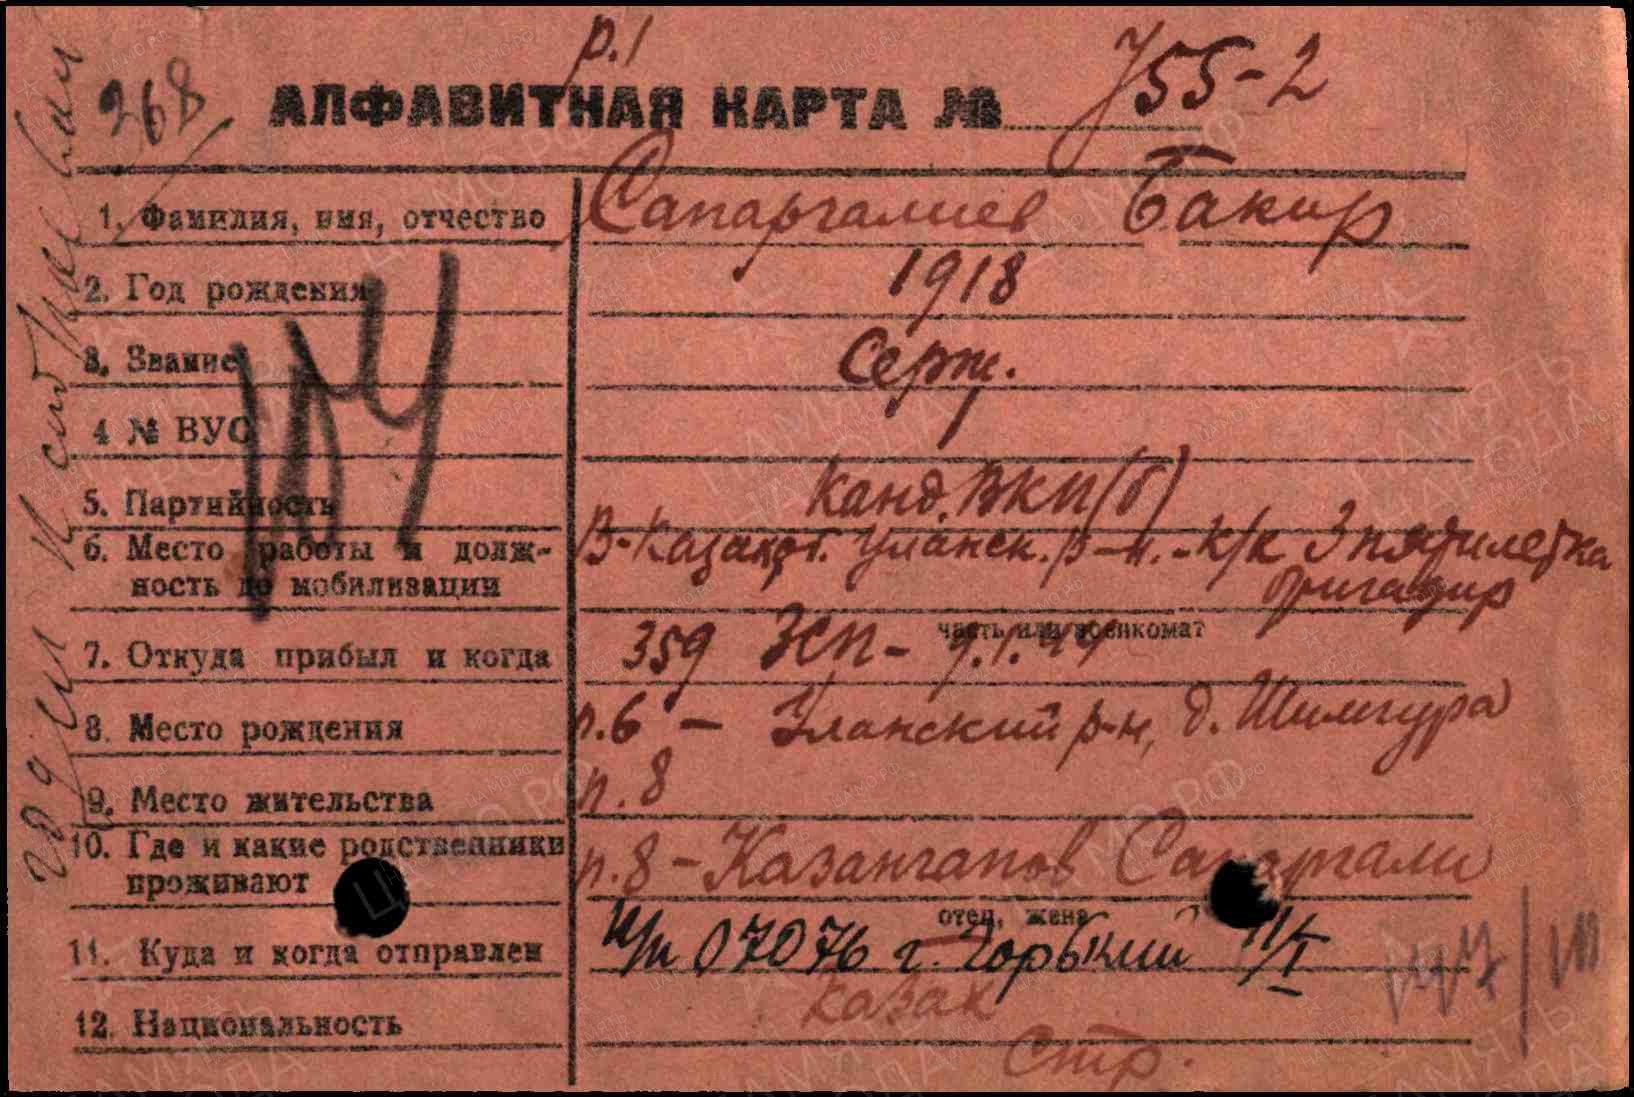 р.1
268
АЛФАВИТНАЯ КАРТА № У55-2
1. Фамилия, имя, отчество Сапаргалиев Бакир
2. Год рождения 1918
3. Звание Серж.
4 № ВУС
5. Партийность Канд. ВКП(б)
6. Место работы и долж- В-Казахст. Уланск. р-н. - к/х 3 пятилетка
ность до мобилизации бригадир
часть или военкомат
7. Откуда прибыл и когда 359 ЗСП - 9.1.44
8. Место рождения п.6 - Уланский р-н, д.
9. Место жительства п.8
10. Где и какие родственники
проживают п.8 - Казангапов Сапаргали
отец, жена
11. Куда и когда отправлен П/п 07076 г. Горький 11/I
12. Национальность казак
стр.